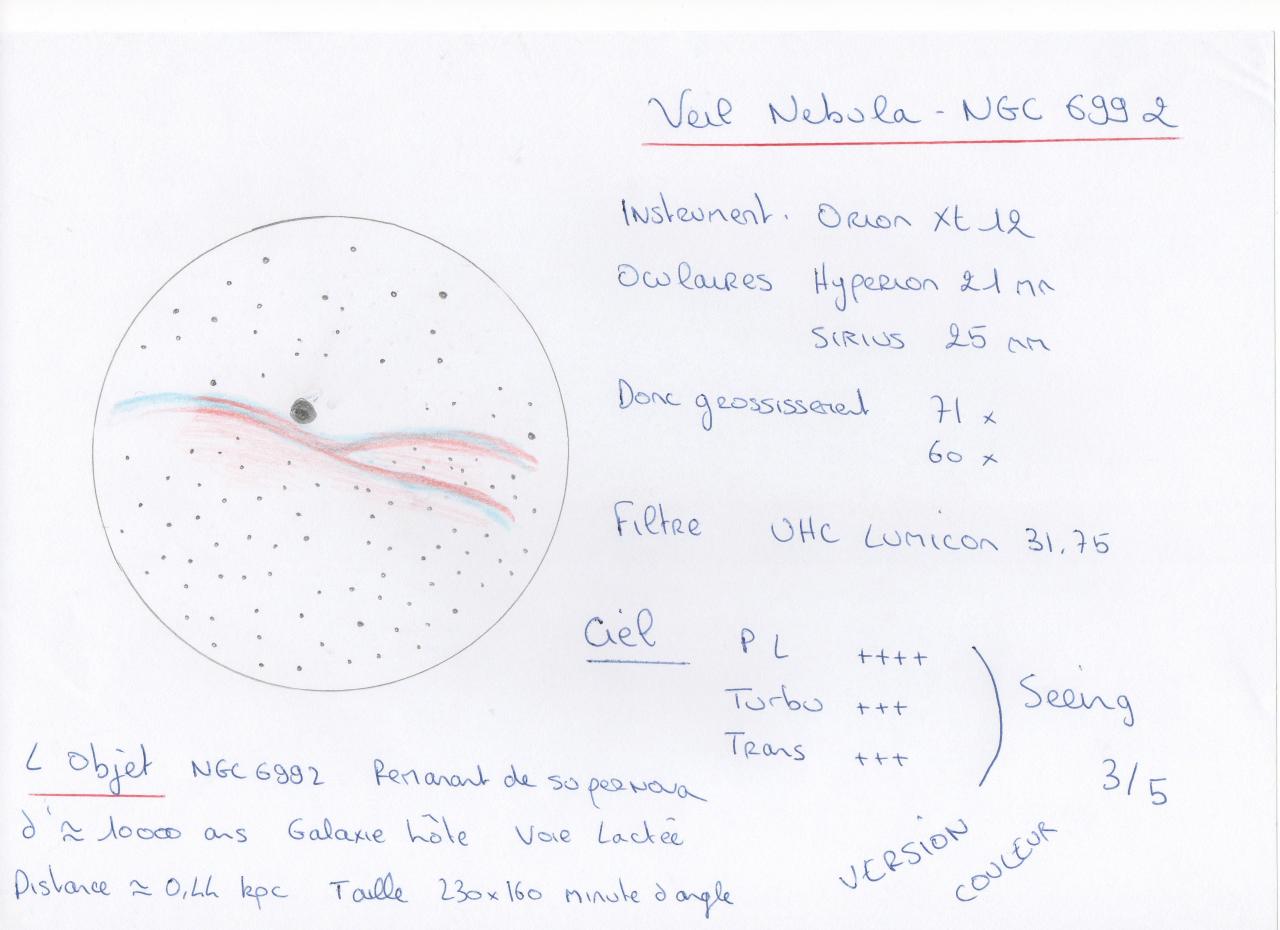 Veil Nebula - NGC 6992
Instrument. Orion Xt 12
Oculaires Hyperion 21 mm
SIRIUS 25 mm
Donc grossissement 71 x
60 x
Filtre UHC LUMICON 31.75
Ciel PL ++++
Turbu +++
Trans +++
Seeing
3/5
L Objet NGC 6992 Remanant de supernova
d'≈ 10000 ans Galaxie hôte Voie Lactée
Distance ≈ 0,44 kpc Taille 230x160 minute d'angle
VERSION
COULEUR